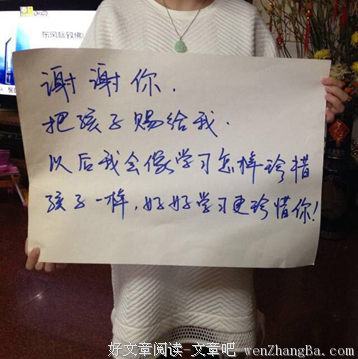 谢谢你.
把孩子赐给我.
以后我会像学习怎样珍惜
孩子一样,好好学习更珍惜你!
好文章阅读-文章吧 wenZhangBa.com